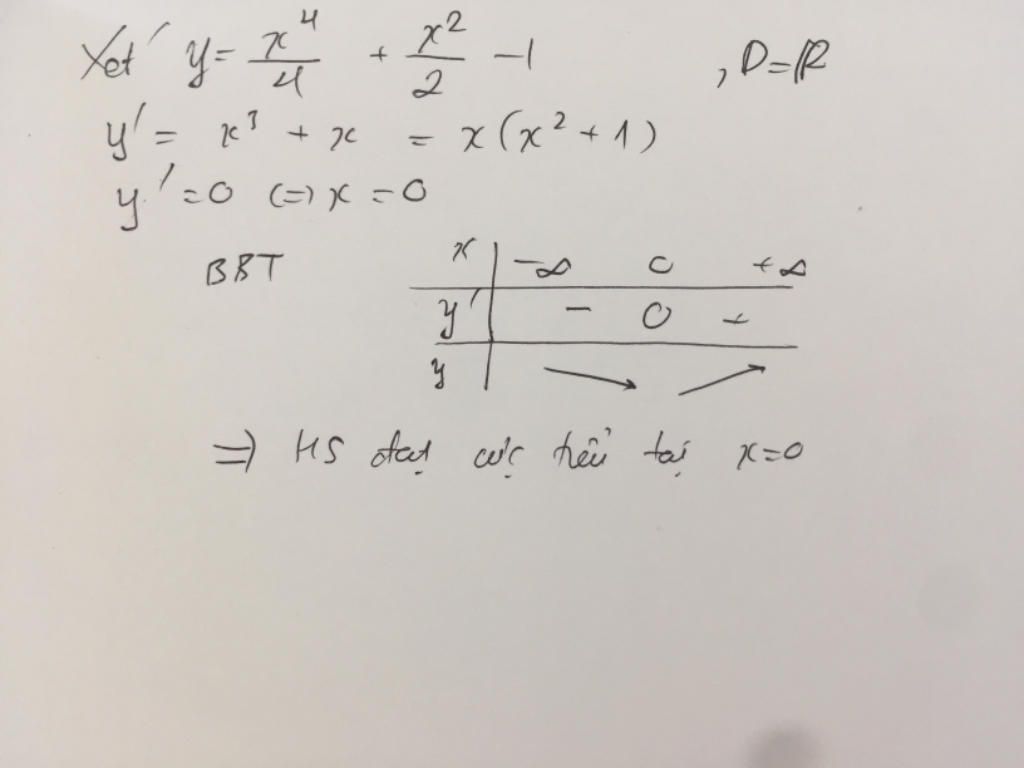 Xét y = x⁴/4 + x²/2 - 1 , D = ℝ
y' = x³ + x = x(x² + 1)
y' = 0 (=) x = 0
BBT x | -∞ 0 +∞
y' | - 0 +
y | ↘ ↗
=> HS đạt cực tiểu tại x=0